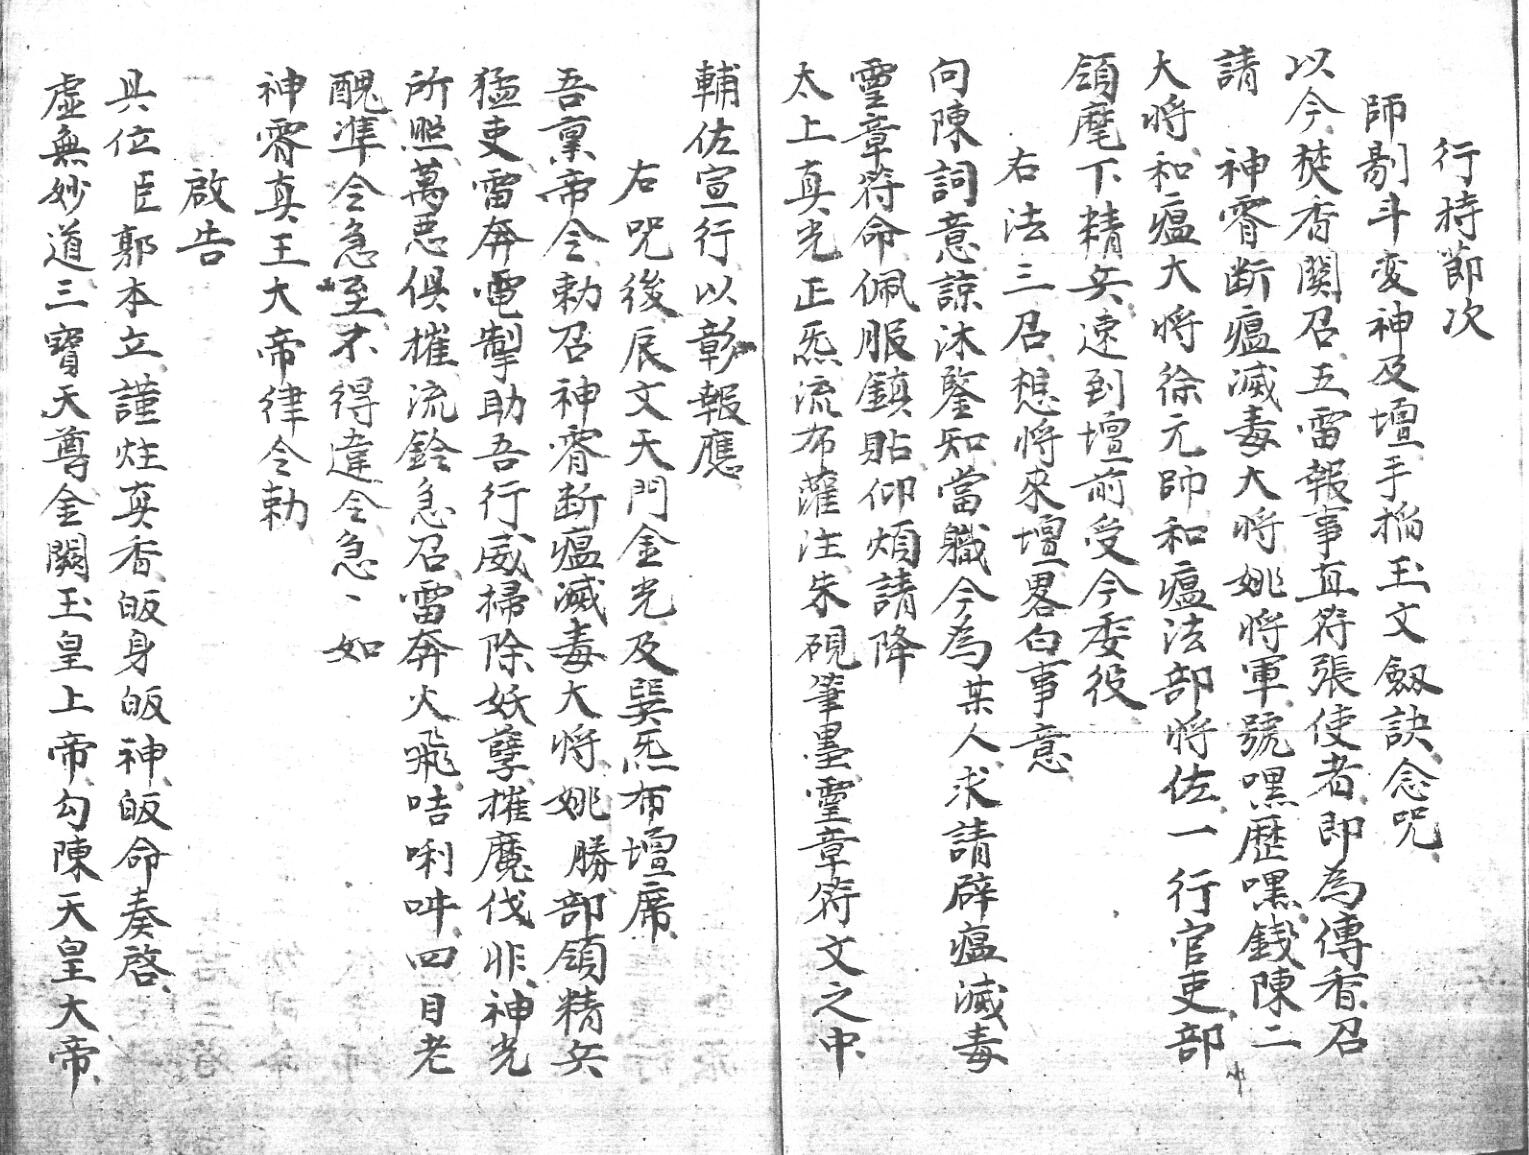 行持節次
師剔斗変神及壇手搯玉文劔訣念呪
以今焚香関召五雷報事直符張使者即為傳香召
請　神霄断瘟滅毒大将姚将軍號嘿歷嘿錢陳二
大将和瘟大将徐元帥和瘟法部将佐一行官吏部
領麾下精兵速到壇前受今委役
右法三召想将來壇畧白事意
向陳詞意諒沐鑒知當職今為某人求請辟瘟滅毒
霊章符命佩服鎮貼仰煩請降
太上真光正炁流布灌注朱硯筆墨霊章符文之中
輔佐宣行以彰報應
右呪後辰文天門金光及巽炁布壇席
吾稟帝令勅召神霄断瘟滅毒大将姚勝部領精兵
猛吏雷奔電掣助吾行威掃除妖孽摧魔伐非神光
所照萬惡俱摧流鈴急召雷奔火飛咭唎吽四目老
醜準令急至不得違令急、如
神霄真王大帝律令勅
啟告
具位臣郭本立謹炷真香皈身皈神皈命奏啓
虛無妙道三寶天尊金闕玉皇上帝勾陳天皇大帝